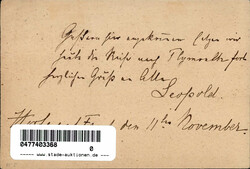 Gestern hier angekommen setzen wir
heute die Reise nach Plymouth fort
herzlichen Gruß an Alle
Leopold.
den 11ten November.
0477403368
0
www.stade-auktionen.de